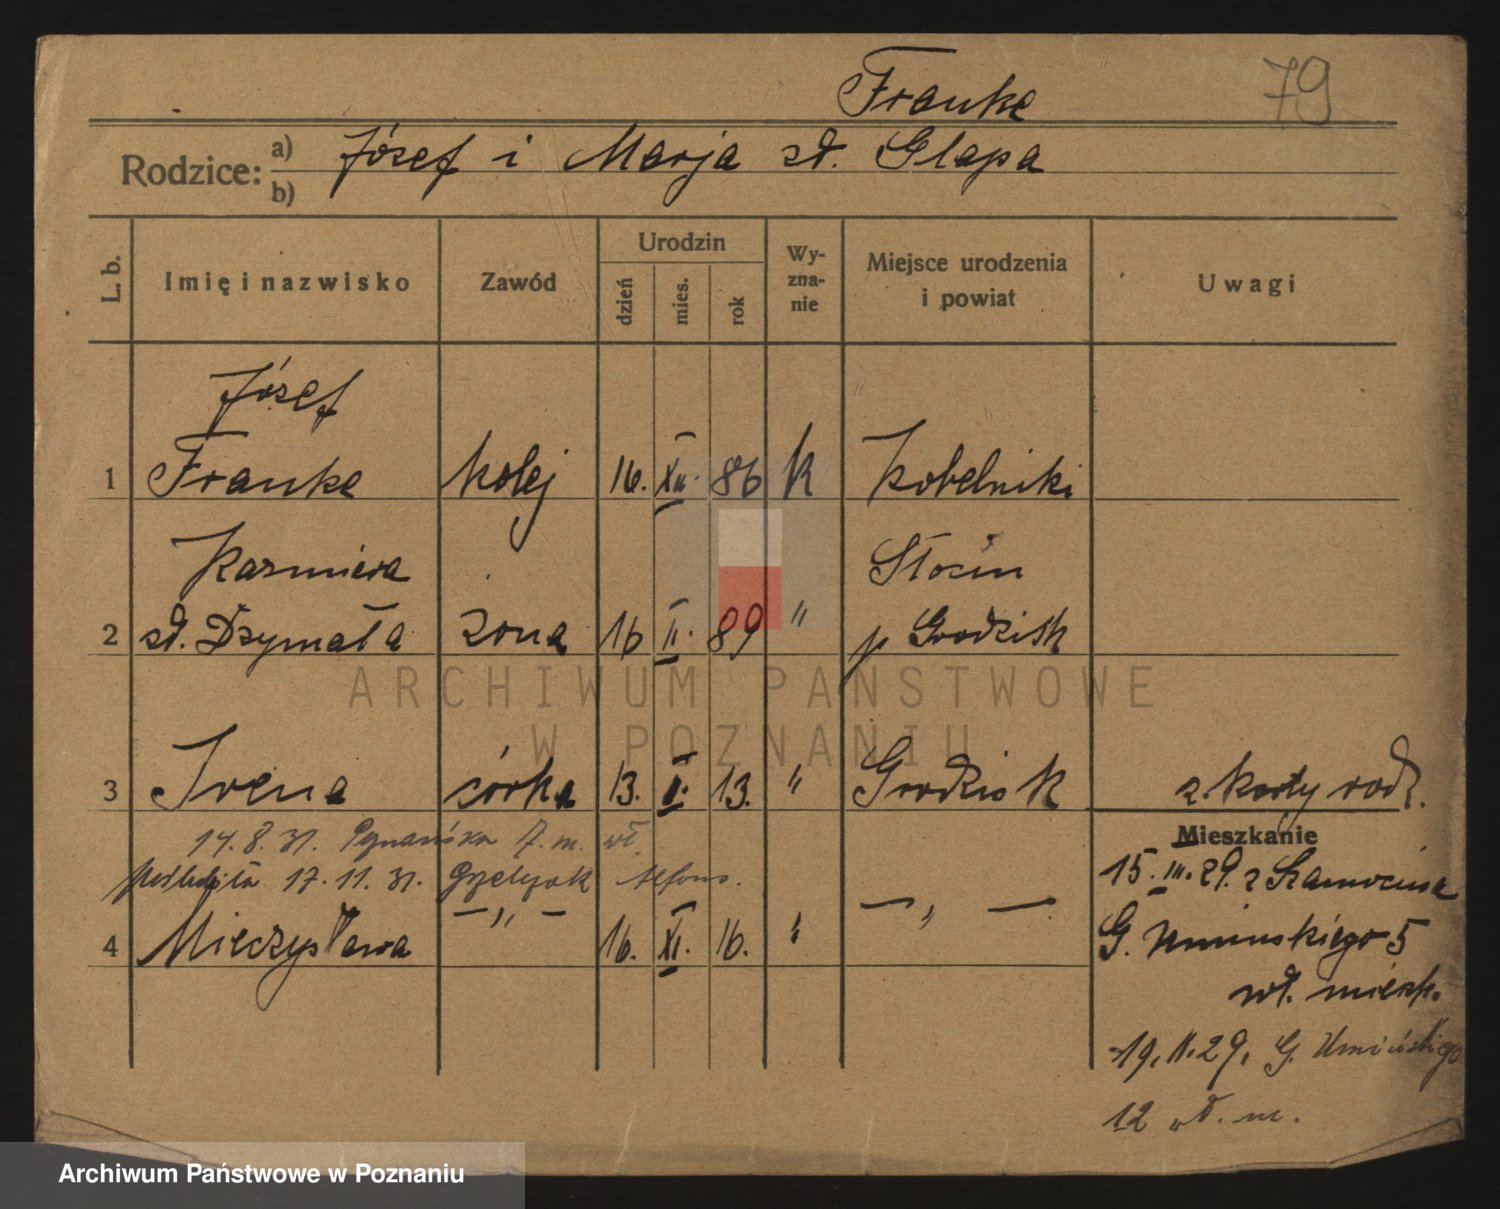 Franke 79
Rodzice: a) b) Józef i Marja zd. Glapa
L. b. Imię i nazwisko Zawód Urodzin dzień mies. rok Wyznanie Miejsce urodzenia i powiat Uwagi
Józef
1 Franke kolej 16. XII. 86 k Kobelniki
Kazmiera Słocin
2 zd. Dzymała żona 16 II. 89 " p Grodzisk
3 Irena córka 13. II. 13. " Grodzisk z karty rodz.
14. 8. 31. 7. m. wł.
Mieszkanie
17. 11. 31. Alfons.
15. III. 29. z
— " — — " —
4 Mieczysława 16. XI. 16. " G. Umińskiego 5
wł. mieszk.
19. 11. 29. G. Umińskiego
12 wł. m.
ARCHIWUM PAŃSTWOWE
W POZNANIU
Archiwum Państwowe w Poznaniu